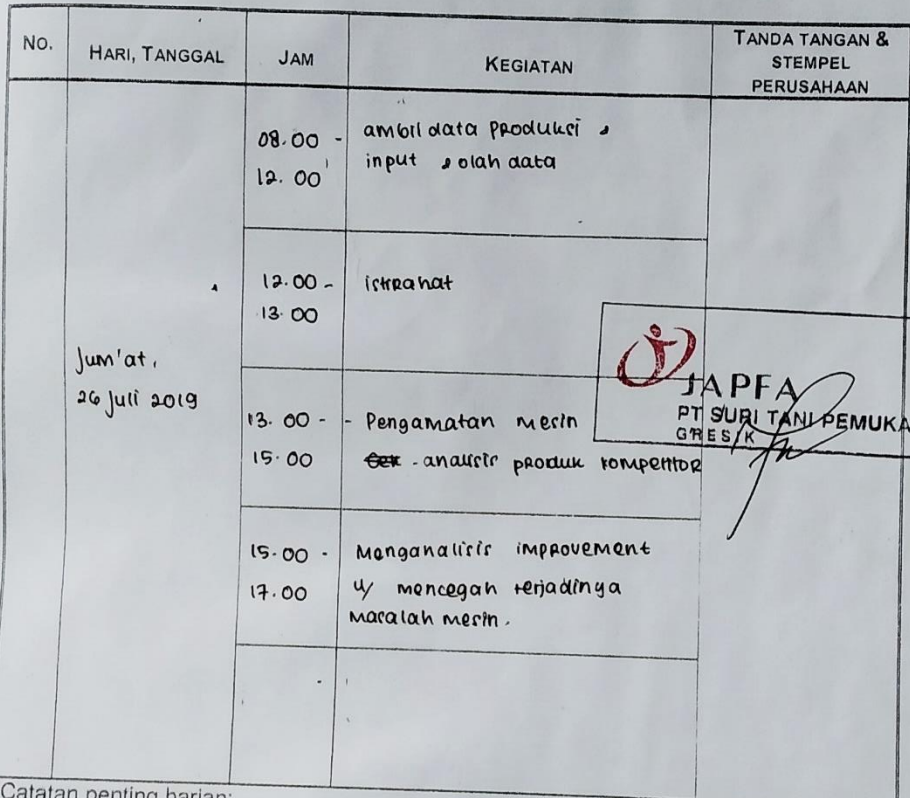 NO.
HARI, TANGGAL
JAM
KEGIATAN
TANDA TANGAN &
STEMPEL
PERUSAHAAN
Jum'at,
26 Juli 2019
08.00 -
12.00
ambil data produksi,
input, olah data
12.00 -
13.00
istrahat
13.00 -
15.00
- Pengamatan mesin
- analisis produk kompetitor
15.00 -
17.00
Menganalisis improvement
u/ mencegah terjadinya
masalah mesin.
JAPFA
PT SURI TANI PEMUKA
GRESIK
Catatan penting harian: